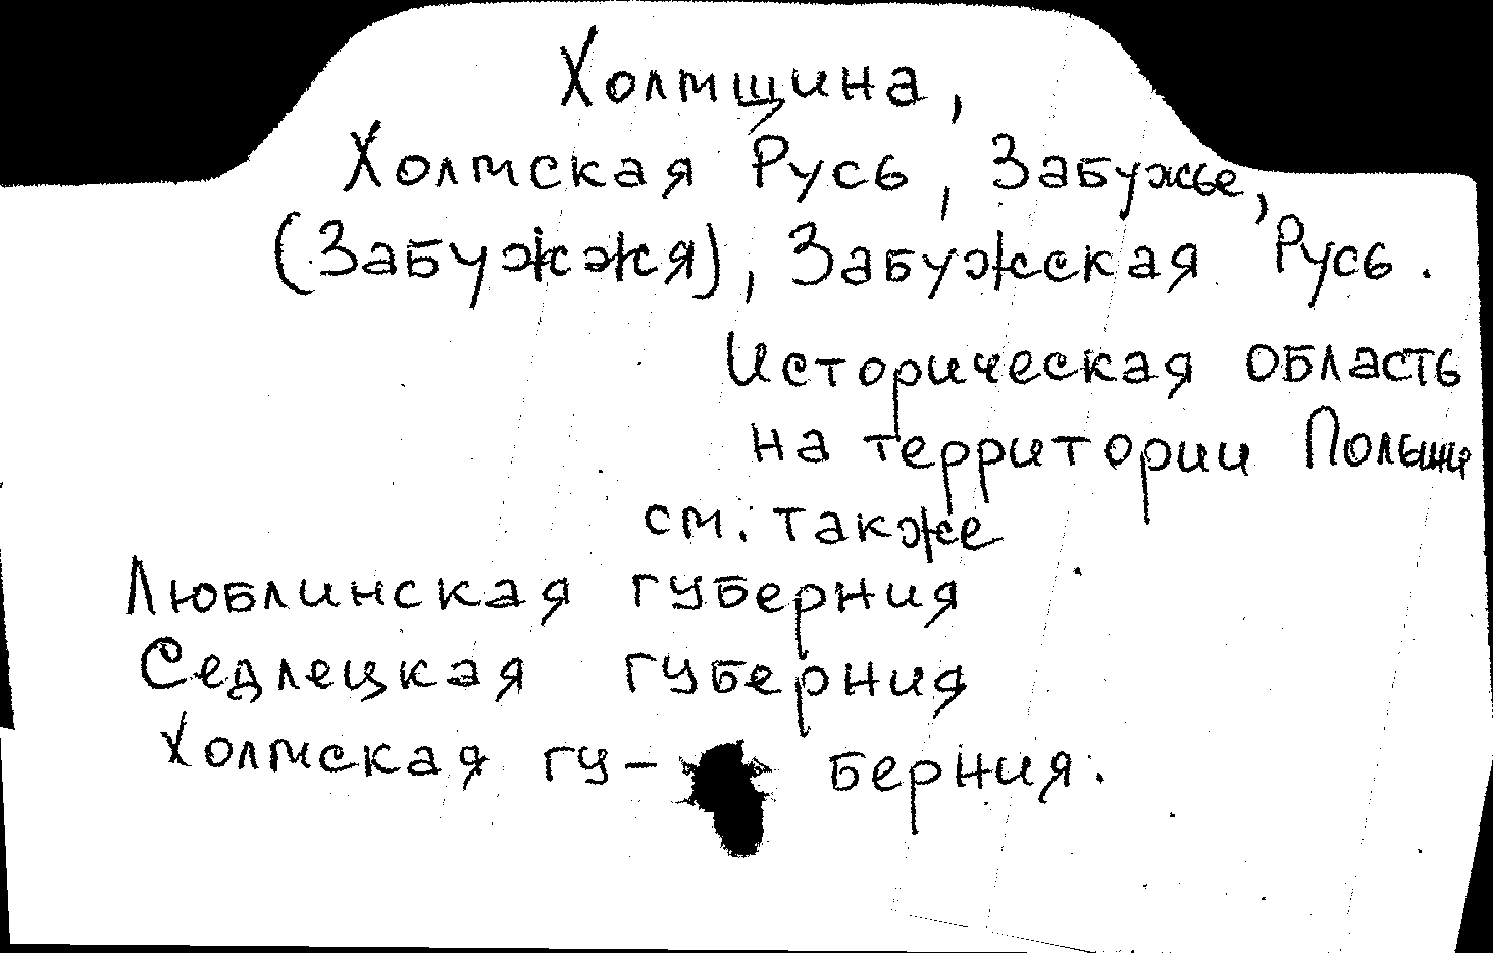 Холмщина,
Холмская Русь, Забужье,
(Забужжя), Забужская Русь.
Историческая область
на территории Польши
см. также
Люблинская губерния
Седлецкая губерния
Холмская гу- берния.